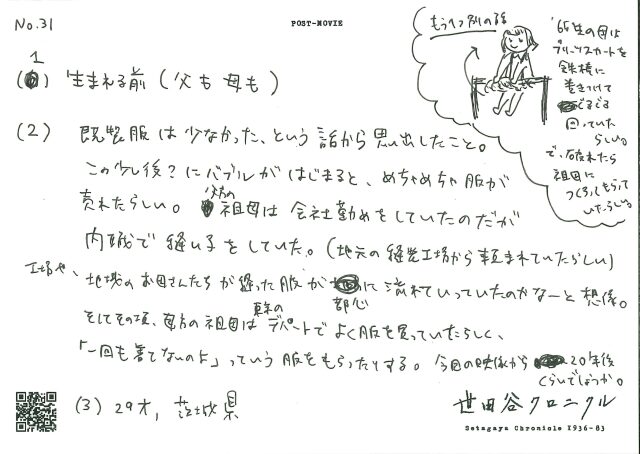 No.31
POST-MOVIE
もう1つ別の話
'65生の母は
プリーツスカートを
鉄棒に
巻きつけて
ぐるぐる
回っていた
らしい。
で、破れたら
祖母に
つくろってもらって
いたらしい。
(1) 生まれる前 (父も母も)
(2) 既製服は少なかった、という話から思い出したこと。
この少し後?にバブルがはじまると、めちゃめちゃ服が
売れたらしい。父方の祖母は会社勤めをしていたのだが
内職で縫い子をしていた。(地元の縫製工場から頼まれていたらしい)
工場や、地域のお母さんたちが縫った服が都心に流れていっていたのかなーと想像。
そしてその頃、母方の祖母は東京のデパートでよく服を買っていたらしく、
「一回も着てないのよ」っていう服をもらったりする。今回の映像から20年後
くらいでしょうか。
(3) 29才, 茨城県
世田谷クロニクル
Setagaya Chronicle 1936-83